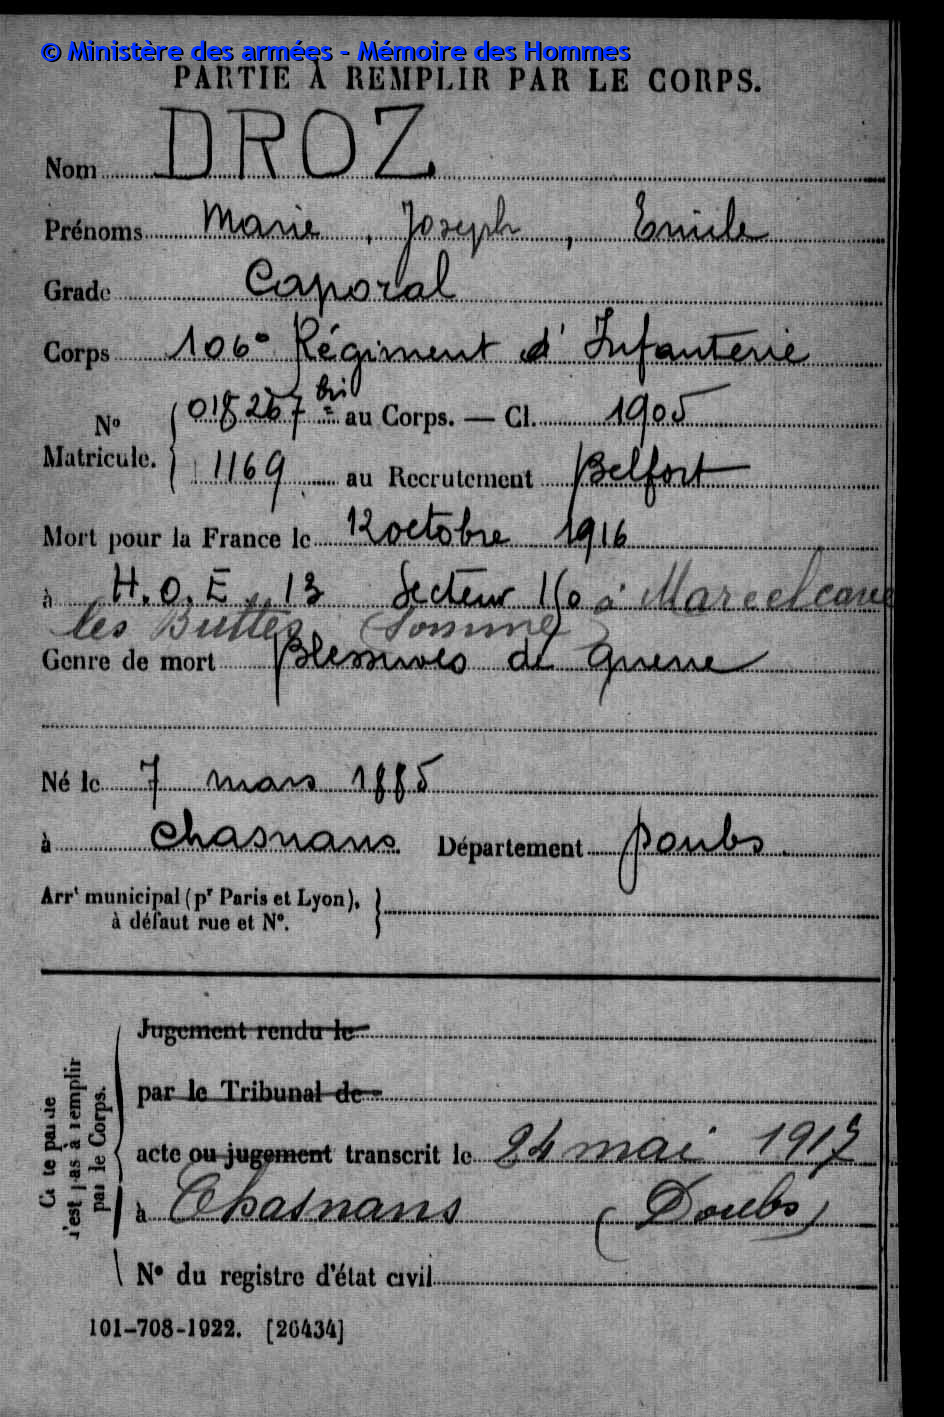 © Ministère des armées - Mémoire des Hommes
PARTIE À REMPLIR PAR LE CORPS.
Nom DROZ
Prénoms Marie, Joseph, Emile
Grade Caporal
Corps 106e Régiment d'Infanterie
No Matricule. 018267 bis au Corps. — Cl. 1905
1169 au Recrutement Belfort
Mort pour la France le 12 octobre 1916
à H.O.E 13 Secteur 150 à Marcelcave
les Buttes (Somme)
Genre de mort Blessures de guerre
Né le 7 mars 1885
à Chasnans. Département Doubs.
Arrt municipal (pr Paris et Lyon),
à défaut rue et No.
Jugement rendu le
par le Tribunal de
acte ou jugement transcrit le 24 mai 1917
à Chasnans (Doubs)
No du registre d'état civil
Cette partie
n'est pas à remplir
par le Corps.
101-708-1922. [26434]